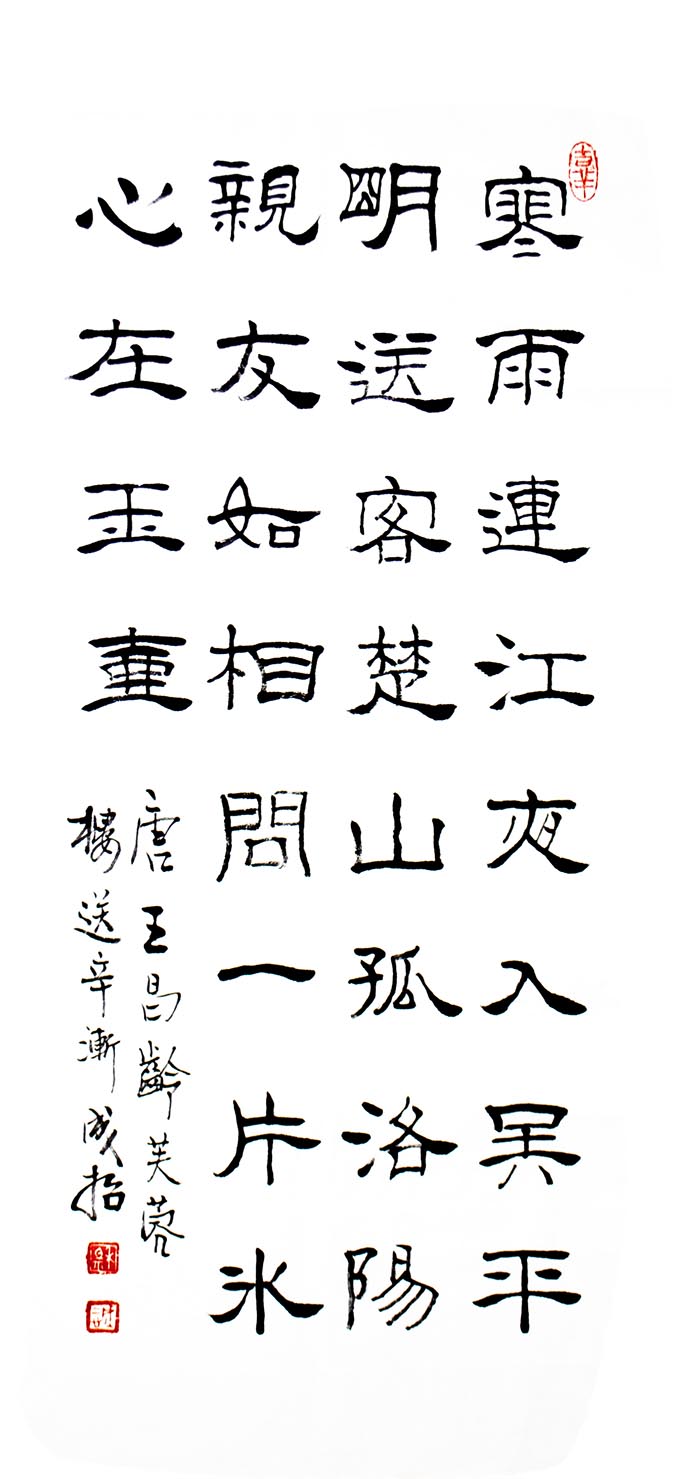 寒雨連江夜入吳平
明送客楚山孤洛陽
親友如相問一片氷
心在玉壺
唐王昌齡芙蓉
樓送辛漸